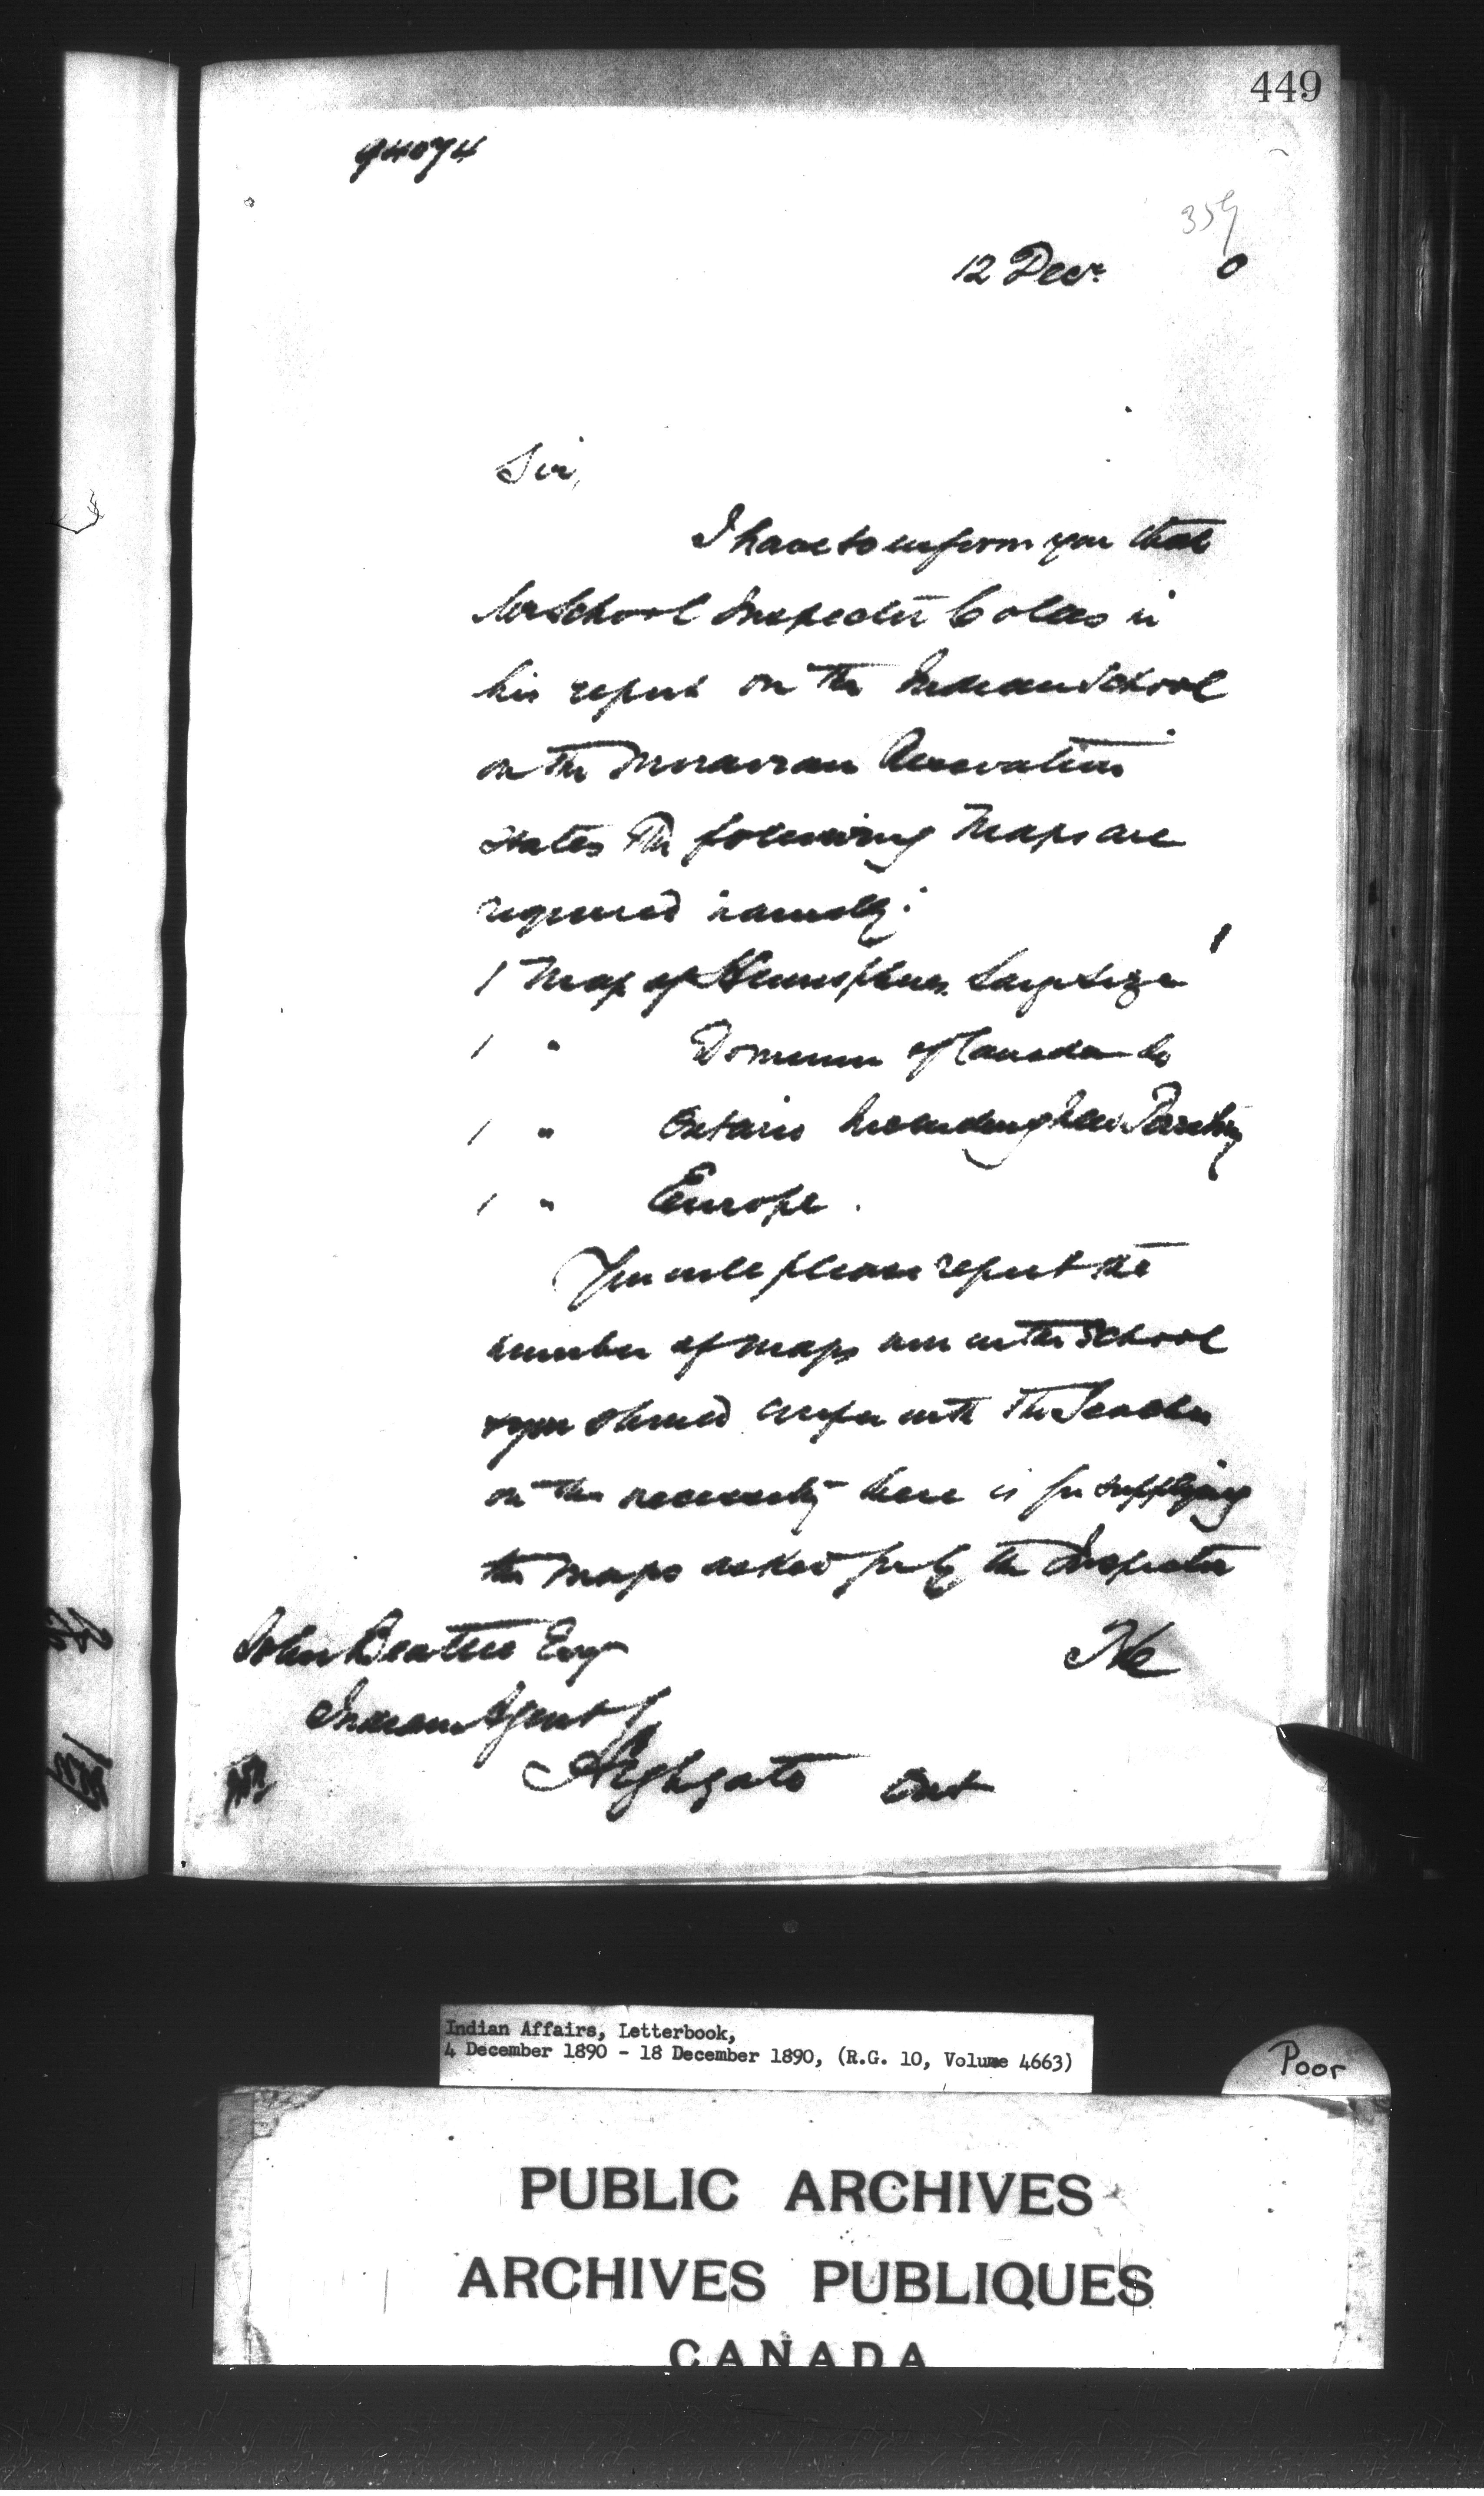 449
94074
359
12 Decr. 0
Sir,
I have to inform you that
Mr School Inspector Colles in
his report on the Indian School
on the Moravian Reservation
states the following Maps are
required namely:
1 Map of Hemispheres Large size
1 " Dominion of Canada do
1 " Ontario including New Territory
1 " Europe.
You will please report the
number of maps now in the School
& you should confer with the Teacher
on the necessity there is for supplying
the maps asked for by the Inspector
The
John Beattie Esq
Indian Agent
Highgate Ont
Indian Affairs, Letterbook,
4 December 1890 - 18 December 1890, (R.G. 10, Volume 4663)
Poor
PUBLIC ARCHIVES
ARCHIVES PUBLIQUES
CANADA